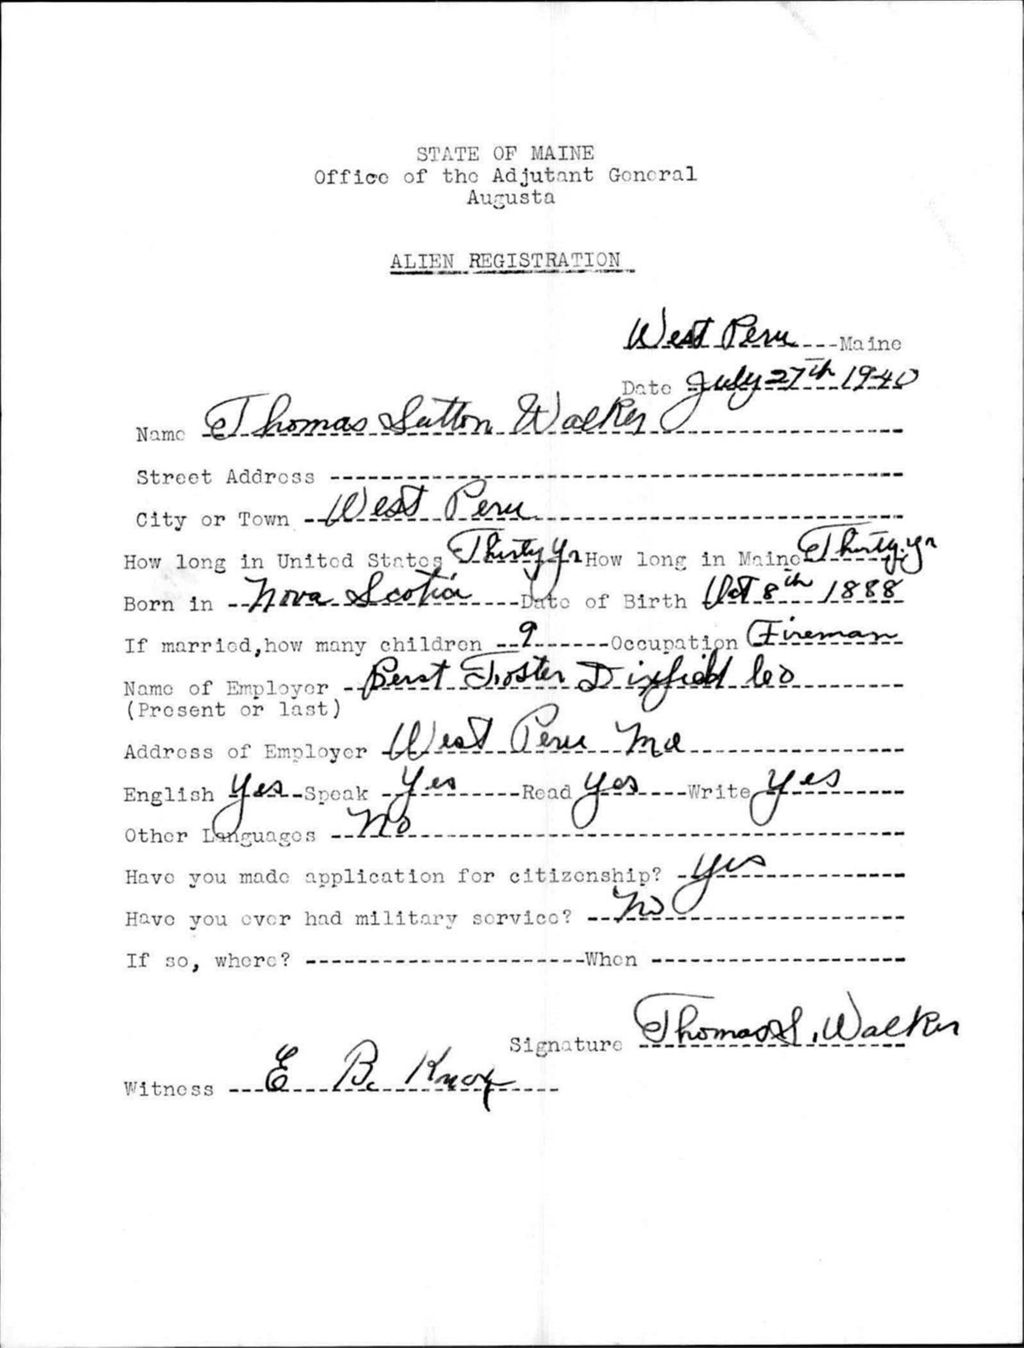 STATE OF MAINE
Office of the Adjutant General
Augusta
ALIEN REGISTRATION
West Peru Maine
Date July 27th 1940
Name Thomas Sutton Walker
Street Address
City or Town West Peru
How long in United States Thirty Yr How long in Maine Thirty Yr
Born in Nova Scotia Date of Birth Oct 8th 1888
If married, how many children 9 Occupation Fireman
Name of Employer Berst Foster Dixfield Co
(Present or last)
Address of Employer West Peru Me
English Yes Speak Yes Read Yes Write Yes
Other Languages No
Have you made application for citizenship? Yes
Have you ever had military service? No
If so, where? When
Signature Thomas S. Walker
Witness E B. Knox